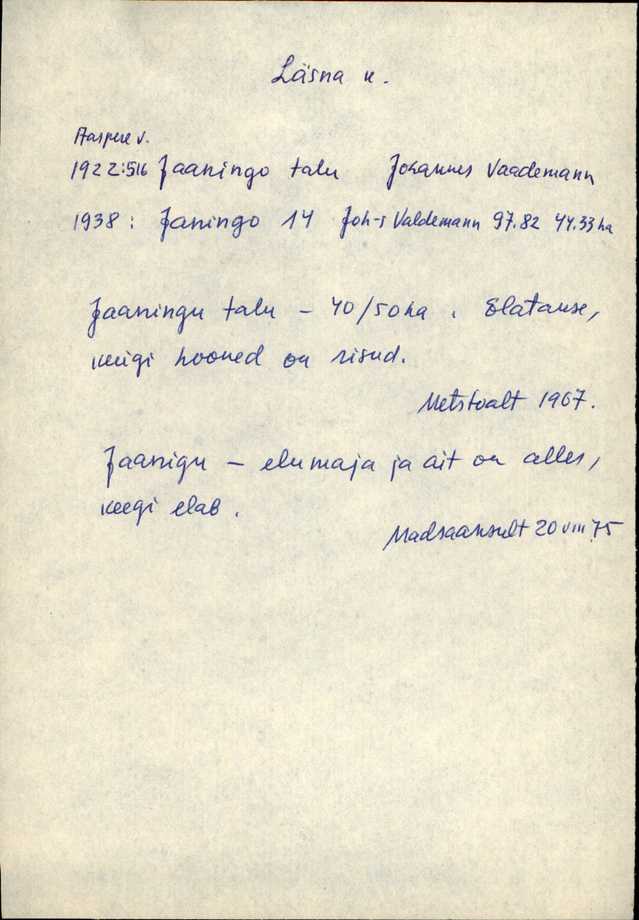 Läsna k.
Aaspere v.
1922:516 Jaaningo talu Johannes Vaademann
1938: Janingo 14 Joh-s Valdemann 97.82 44.33 ha
Jaaningu talu – 40/50 ha. Elatakse,
keigi hooned on risud.
Metstoalt 1967.
Jaanigu – elumaja ja ait on alles,
keegi elab.
Madsaansult 20 VIII 75